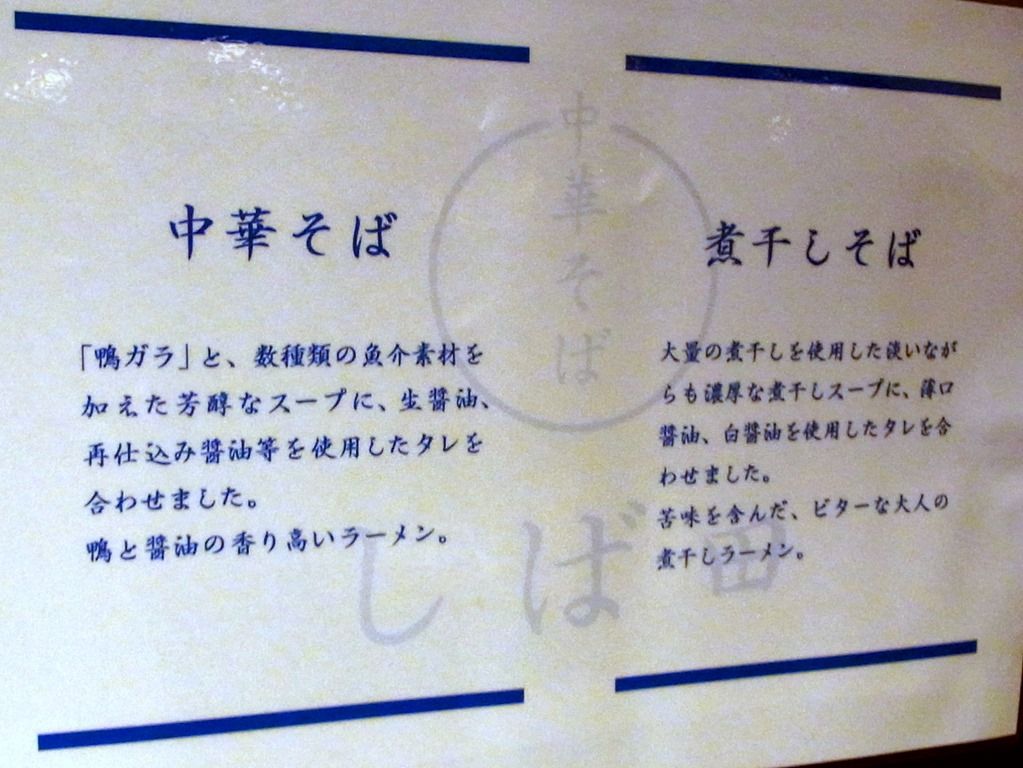 中華そば
「鴨ガラ」と、数種類の魚介素材を
加えた芳醇なスープに、生醤油、
再仕込み醤油等を使用したタレを
合わせました。
鴨と醤油の香り高いラーメン。
煮干しそば
大量の煮干しを使用した淡いなが
らも濃厚な煮干しスープに、薄口
醤油、白醤油を使用したタレを合
わせました。
苦味を含んだ、ビターな大人の
煮干しラーメン。
中華そば
しば田